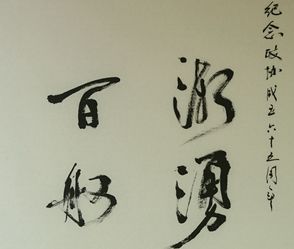 紀念政协成立六十五周年
潮湧
百舸